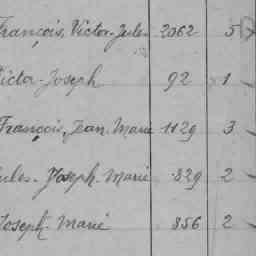 François, Victor-Jules 2062 5
Victor-Joseph 92 1
François, Jean-Marie 1129 3
Jules-Joseph-Marie 829 2
Joseph-Marie 856 2